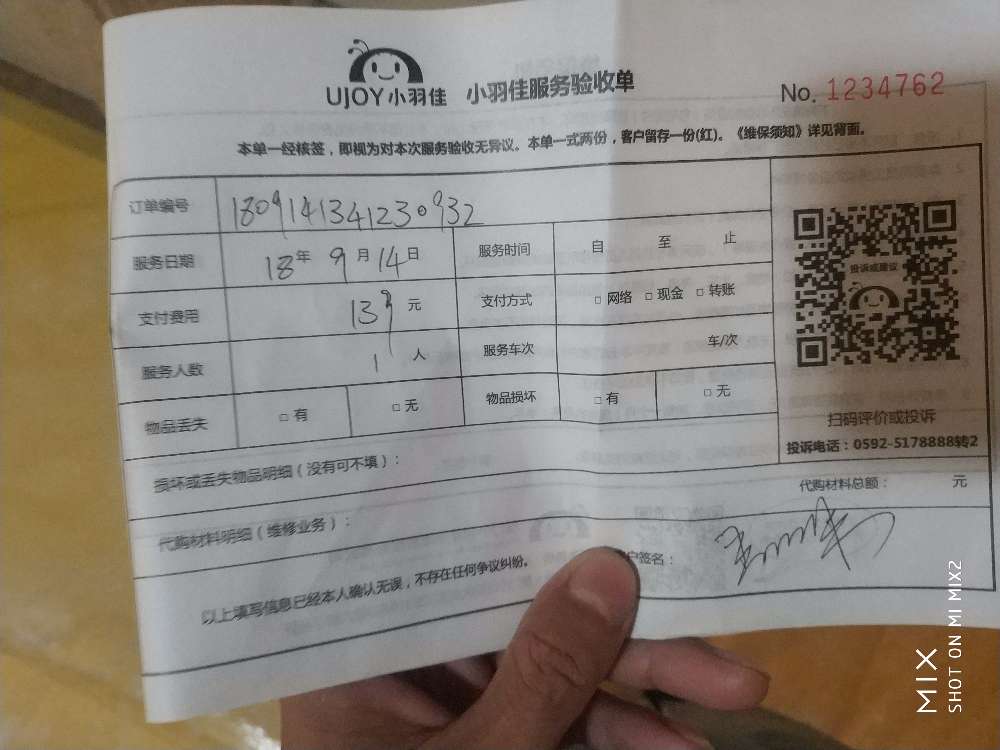 UJOY小羽佳 小羽佳服务验收单 No. 1234762
本单一经核签，即视为对本次服务验收无异议。本单一式两份，客户留存一份(红)。《维保须知》详见背面。
订单编号 1809141341230932
服务日期 18年 9月 14日 服务时间 自 至 止
支付费用 139 元 支付方式 □ 网络 □ 现金 □ 转账
服务人数 1 人 服务车次 车/次
物品丢失 □ 有 □ 无 物品损坏 □ 有 □ 无
投诉或建议
扫码评价或投诉
投诉电话：0592-5178888转2
损坏或丢失物品明细（没有可不填）：
代购材料总额： 元
代购材料明细（维修业务）：
户签名：
以上填写信息已经本人确认无误，不存在任何争议纠纷。
MIX
SHOT ON MI MIX2